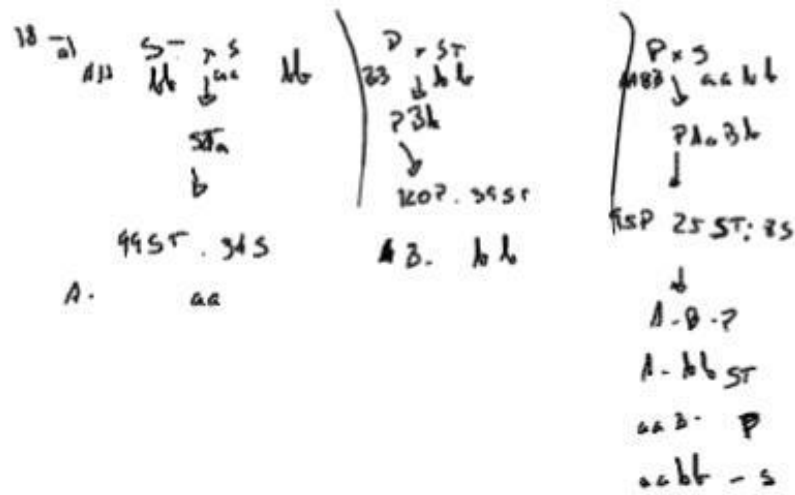 18-a) ST x S
AA bb ↓ aa bb
STa
b
99ST. 34S
A- aa
P x ST
BB ↓ bb
PBb
↓
120P. 39ST
B- bb
P x S
AABB ↓ aabb
PAaBb
↓
95P 25ST: 8S
↓
A-B-P
A-bb ST
aaB- P
aabb - S